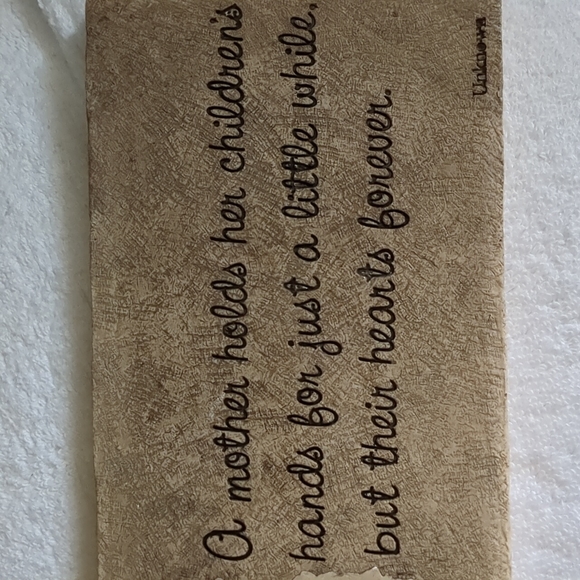 A mother holds her children's
hands for just a little while,
but their hearts forever.
Unknown